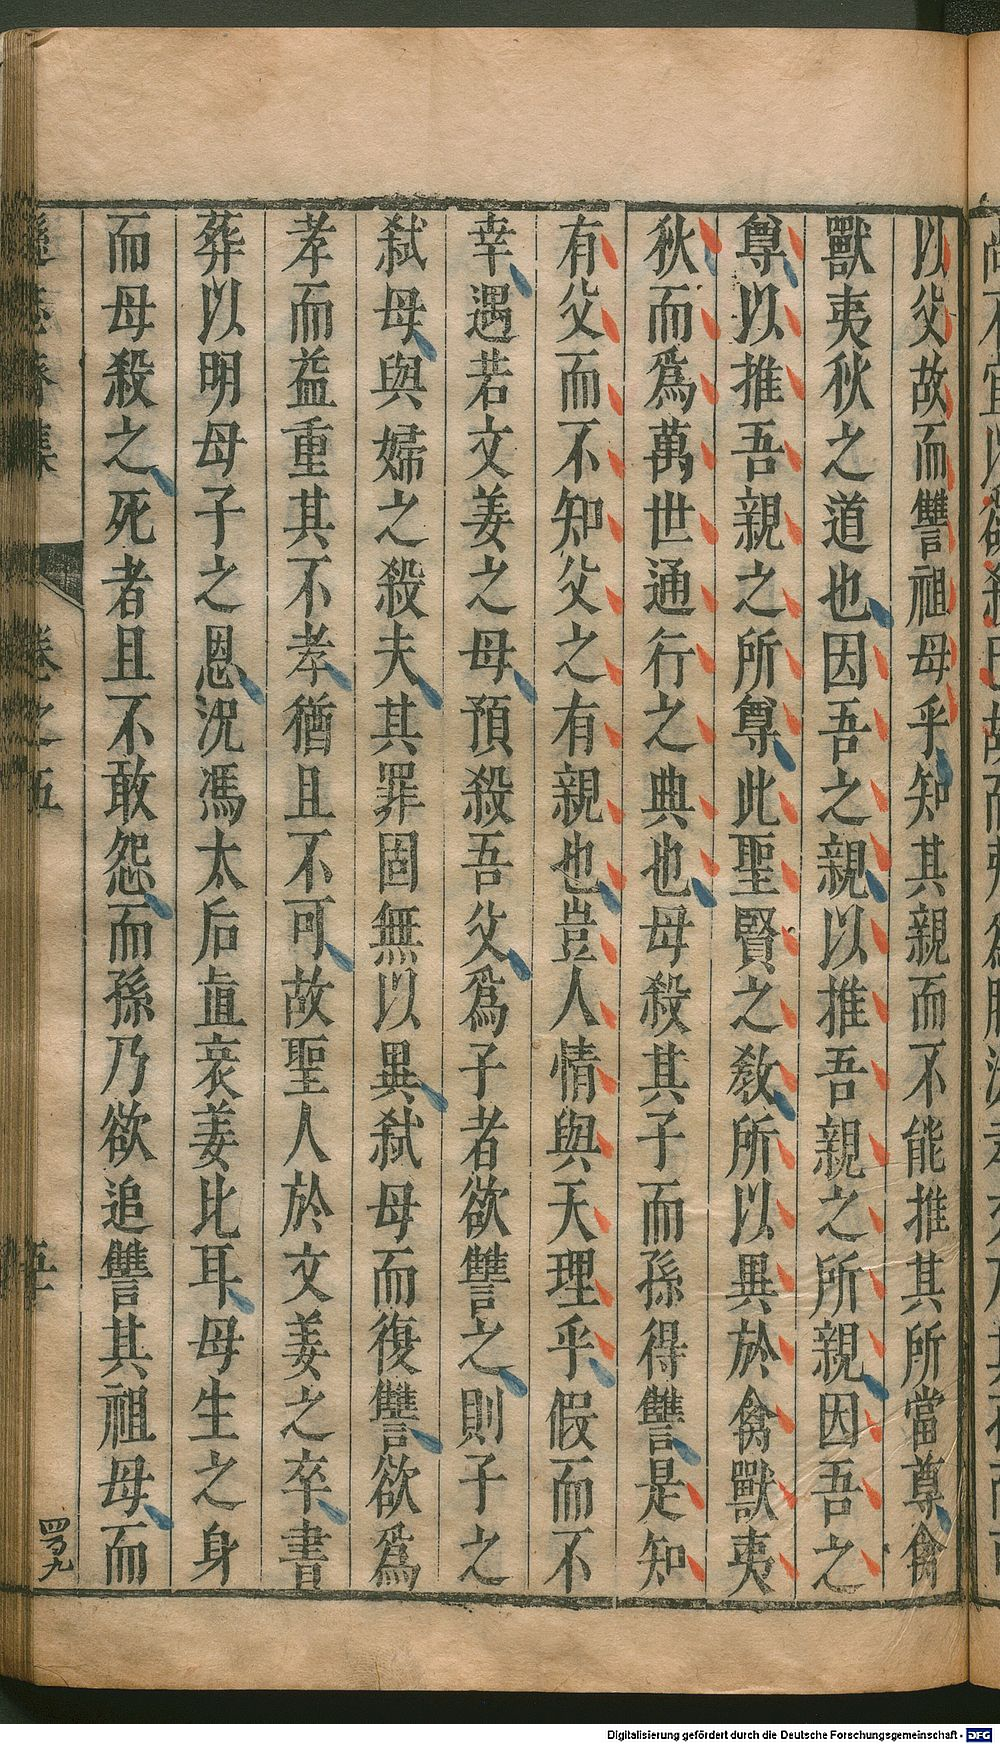 以父故而讐祖母乎知其親而不能推其所當尊禽
獸夷狄之道也因吾之親以推吾親之所親因吾之
尊以推吾親之所尊此聖賢之教所以異於禽獸夷
狄而爲萬世通行之典也母殺其子而孫得讐是知
有父而不知父之有親也豈人情與天理乎假而不
幸遇若文姜之母預殺吾父爲子者欲讐之則子之
弑母與婦之殺夫其罪固無以異弑母而復讐欲爲
孝而益重其不孝猶且不可故聖人於文姜之卒書
葬以明母子之恩況馮太后直哀姜比耳母生之身
而母殺之死者且不敢怨而孫乃欲追讐其祖母而
卷之五
Digitalisierung gefördert durch die Deutsche Forschungsgemeinschaft - DFG